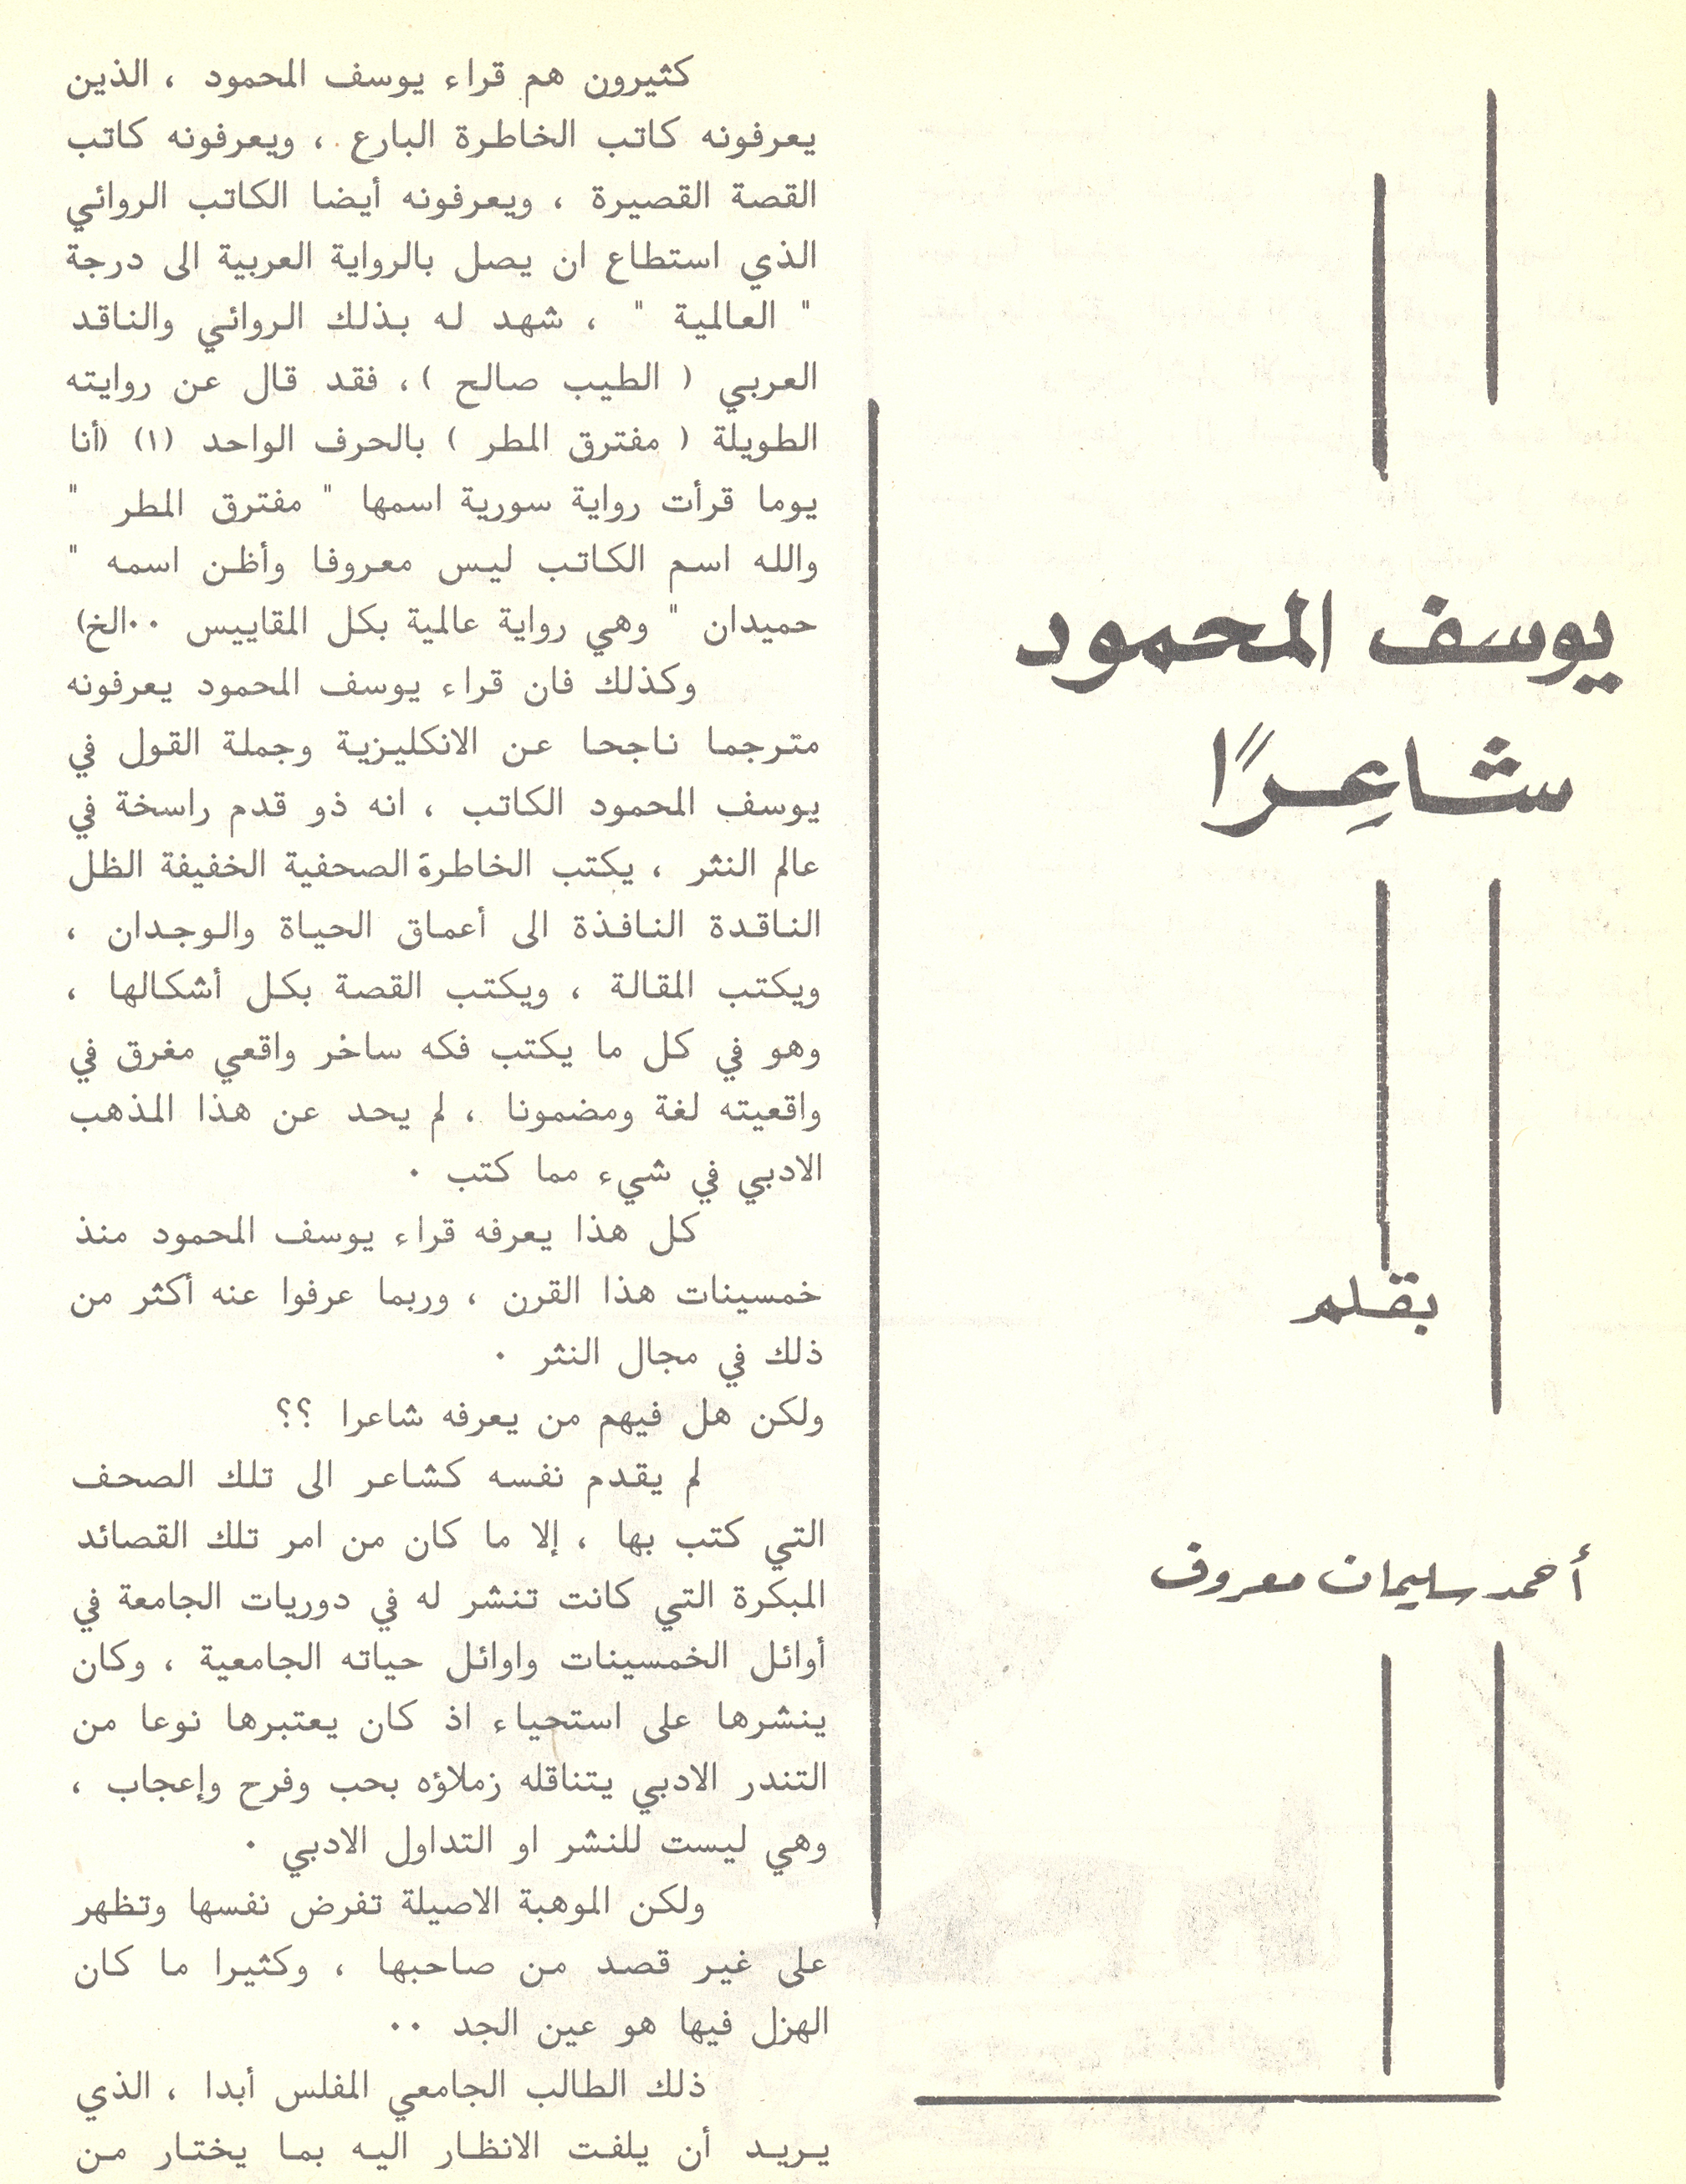 يوسف المحمود
شاعِرًا
بقلم
أحمد سليمان معروف
كثيرون هم قراء يوسف المحمود ، الذين
يعرفونه كاتب الخاطرة البارع ، ويعرفونه كاتب
القصة القصيرة ، ويعرفونه أيضا الكاتب الروائي
الذي استطاع ان يصل بالرواية العربية الى درجة
" العالمية " ، شهد له بذلك الروائي والناقد
العربي ( الطيب صالح ) ، فقد قال عن روايته
الطويلة ( مفترق المطر ) بالحرف الواحد (١) (أنا
يوما قرأت رواية سورية اسمها " مفترق المطر "
والله اسم الكاتب ليس معروفا وأظن اسمه "
حميدان " وهي رواية عالمية بكل المقاييس ٠٠الخ)
وكذلك فان قراء يوسف المحمود يعرفونه
مترجما ناجحا عن الانكليزية وجملة القول في
يوسف المحمود الكاتب ، انه ذو قدم راسخة في
عالم النثر ، يكتب الخاطرة الصحفية الخفيفة الظل
الناقدة النافذة الى أعماق الحياة والوجدان ،
ويكتب المقالة ، ويكتب القصة بكل أشكالها ،
وهو في كل ما يكتب فكه ساخر واقعي مغرق في
واقعيته لغة ومضمونا ، لم يحد عن هذا المذهب
الادبي في شيء مما كتب ٠
كل هذا يعرفه قراء يوسف المحمود منذ
خمسينات هذا القرن ، وربما عرفوا عنه أكثر من
ذلك في مجال النثر ٠
ولكن هل فيهم من يعرفه شاعرا ؟؟
لم يقدم نفسه كشاعر الى تلك الصحف
التي كتب بها ، إلا ما كان من امر تلك القصائد
المبكرة التي كانت تنشر له في دوريات الجامعة في
أوائل الخمسينات واوائل حياته الجامعية ، وكان
ينشرها على استحياء اذ كان يعتبرها نوعا من
التندر الادبي يتناقله زملاؤه بحب وفرح وإعجاب ،
وهي ليست للنشر او التداول الادبي ٠
ولكن الموهبة الاصيلة تفرض نفسها وتظهر
على غير قصد من صاحبها ، وكثيرا ما كان
الهزل فيها هو عين الجد ٠٠
ذلك الطالب الجامعي المفلس أبدا ، الذي
يريد أن يلفت الانظار اليه بما يختار من